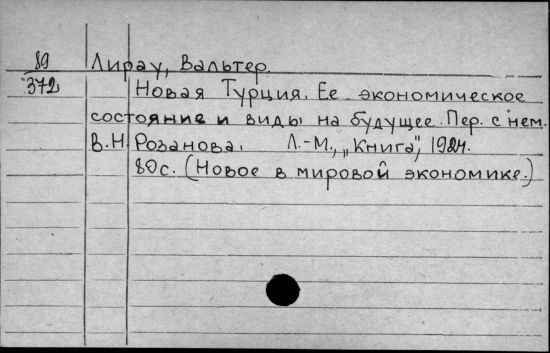 89 Лирау, Вальтер.
372 Новая Турция. Ее экономическое
состояние и виды на будущее. Пер. с нем.
В.Н. Розанова. Л.-М., „Книга", 1924.
80с. (Новое в мировой экономике.)